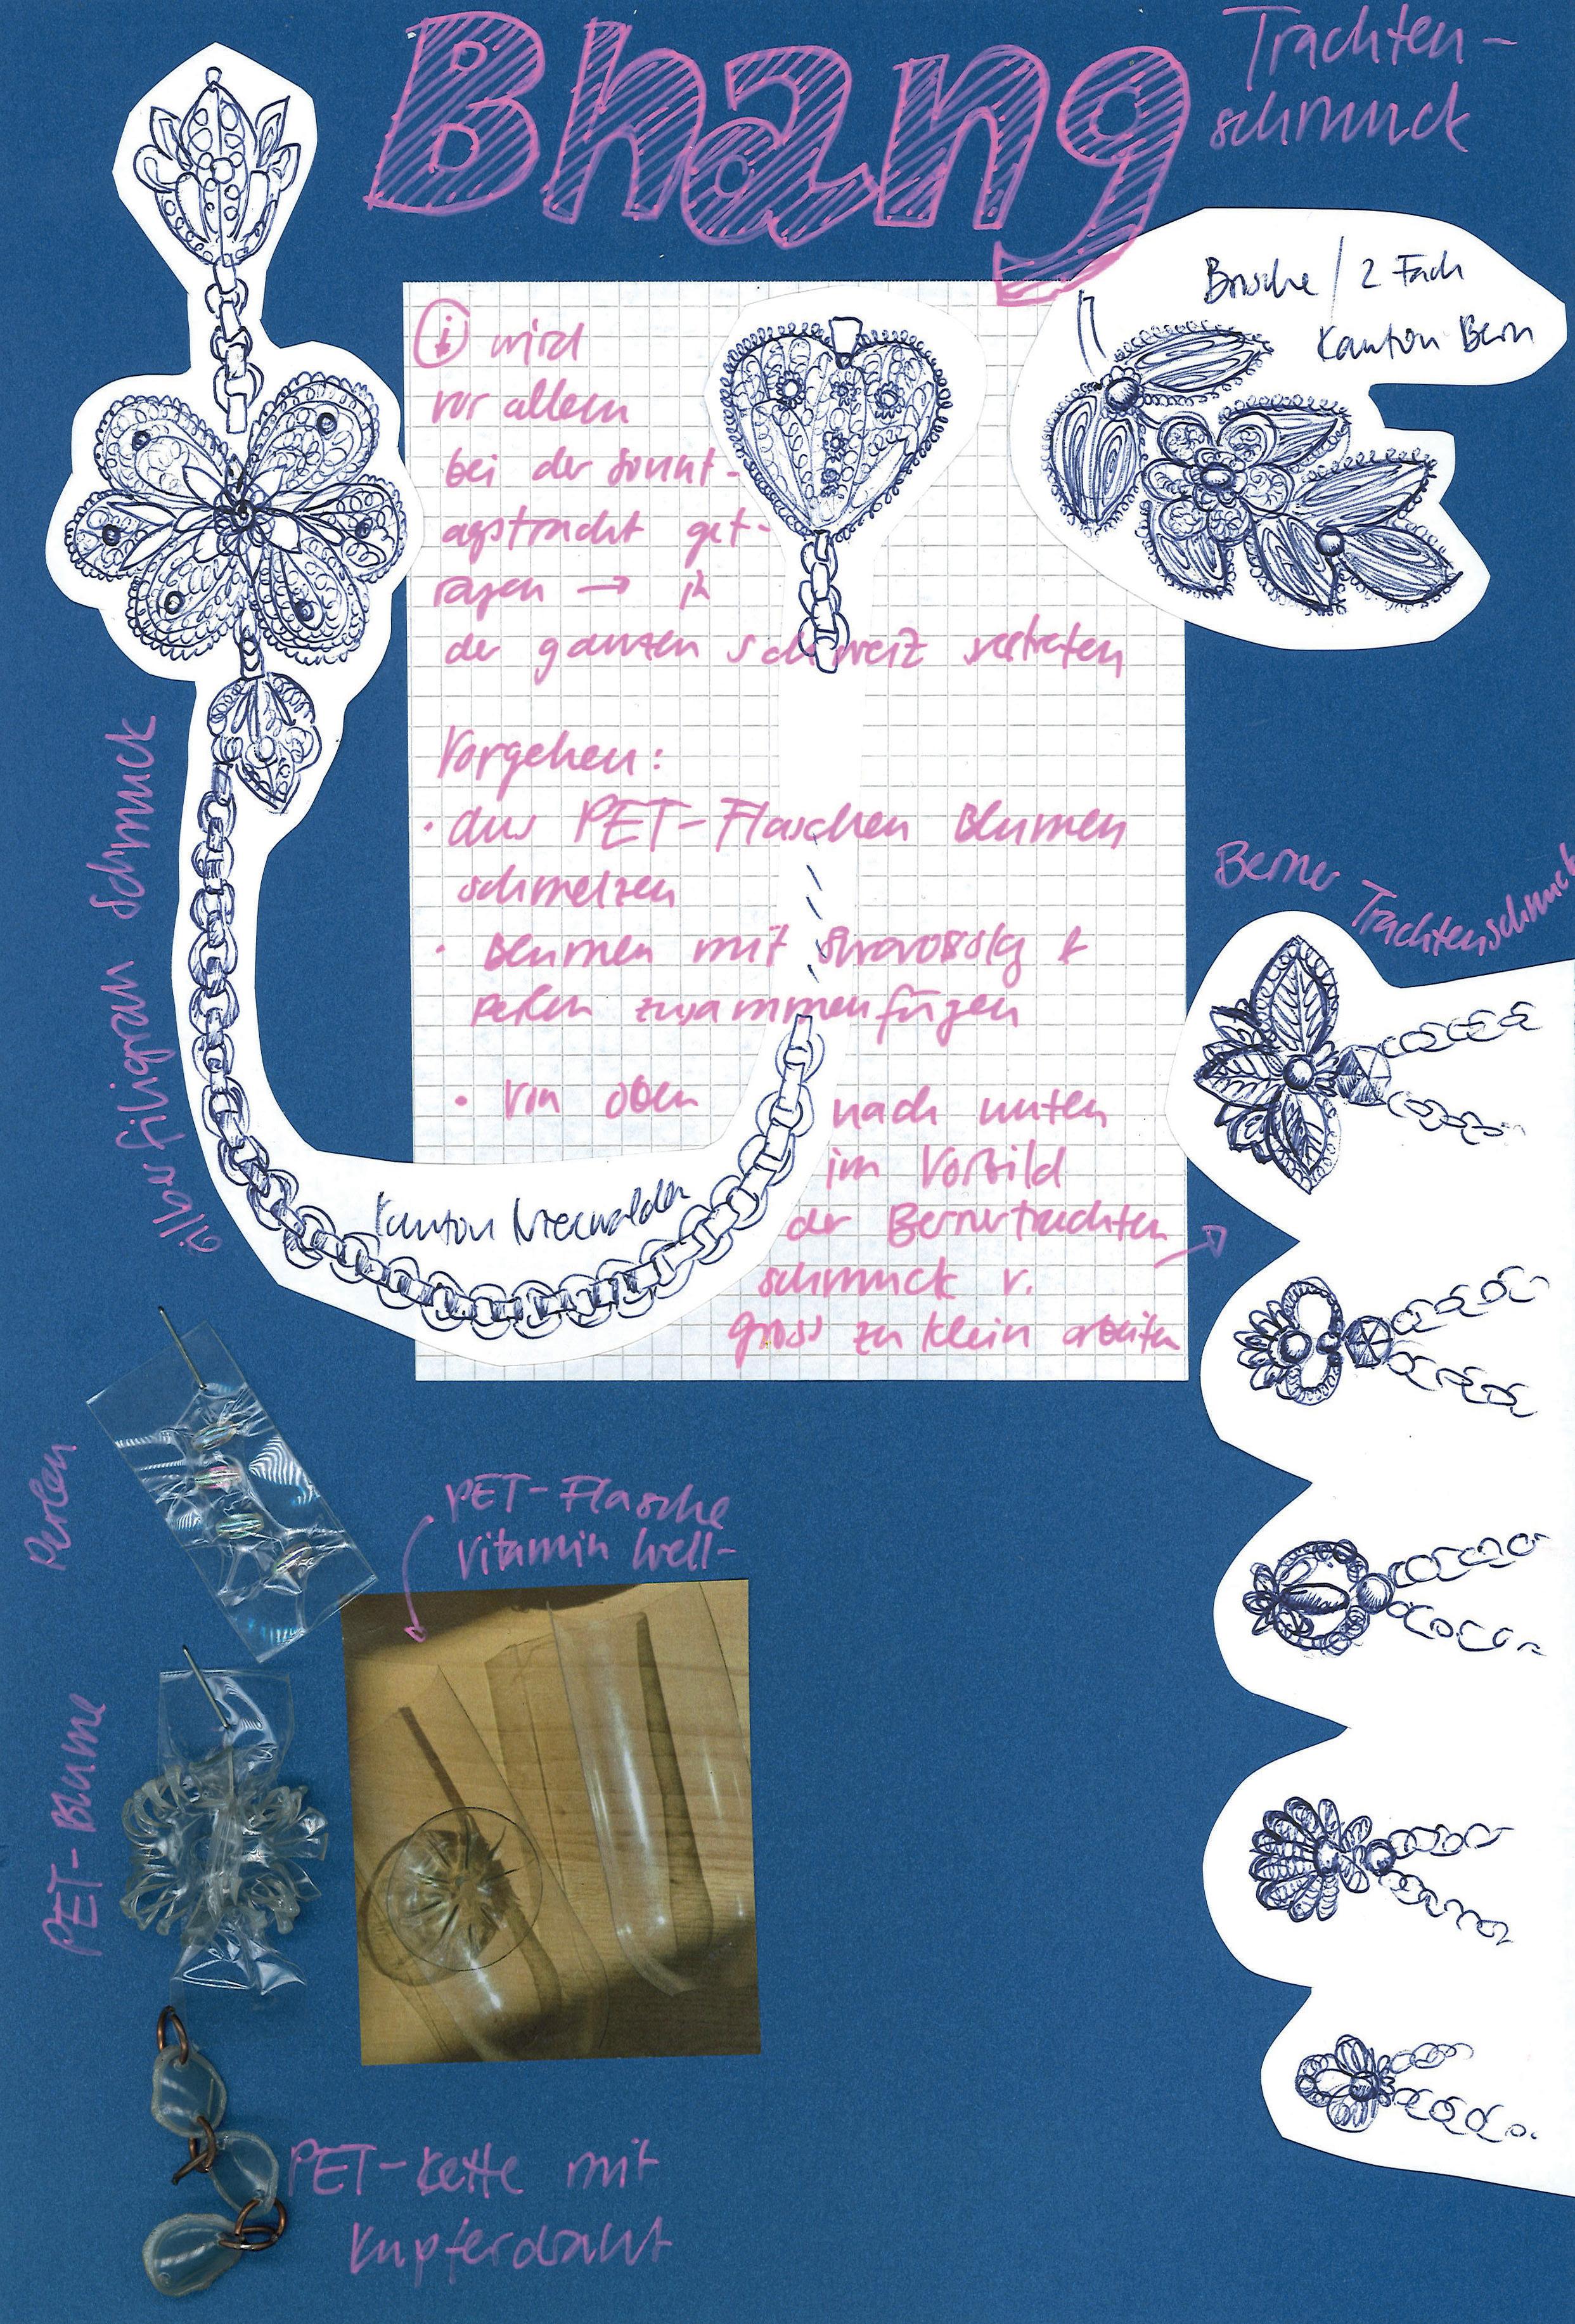 Bhang
Trachten-
schmuck
Brosche / 2 Fach
Kanton Bern
i wird
vor allem
bei der Sonnt-
agstracht get-
ragen → in
der ganzen Schweiz vertreten
Vorgehen:
· aus PET-Flaschen Blumen
schmelzen
· Blumen mit &
Perlen zusammenfügen
· von oben nach unten
im Vorbild
der Bernertrachten
schmuck v.
gross zu klein arbeiten
Silber filigran Schmuck
Kanton Nidwalden
Berner Trachtenschmuck
Perlen
PET-Flasche
Vitamin Well-
PET-Blume
PET-Kette mit
Kupferdraht